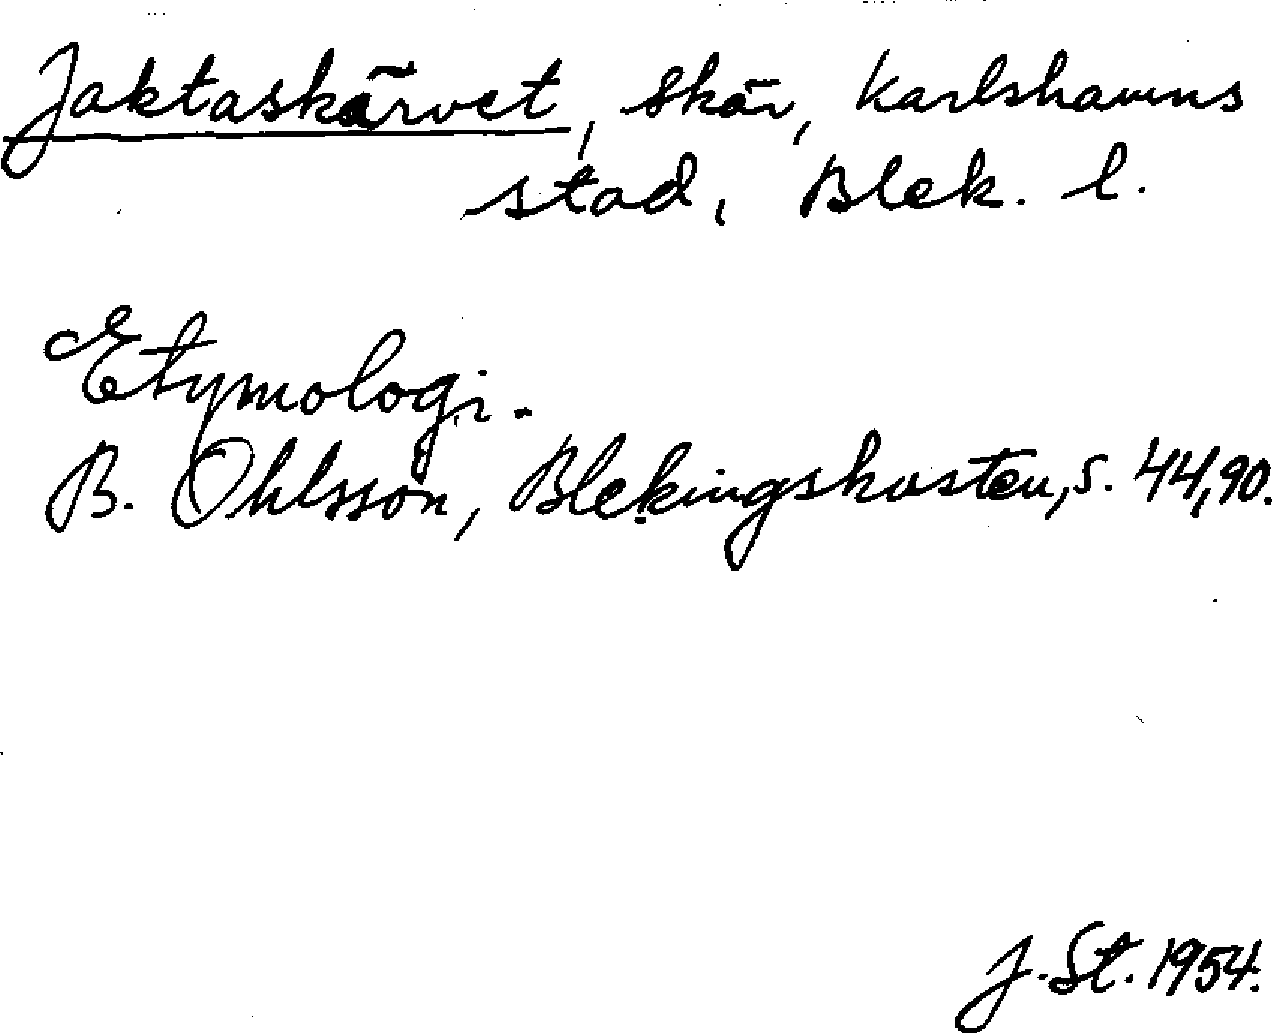 Jaktaskärvet, skär, Karlshamns
stad, Blek. l.
Etymologi.
B. Ohlsson, Blekingskusten, s. 44, 90.
J. St. 1954.